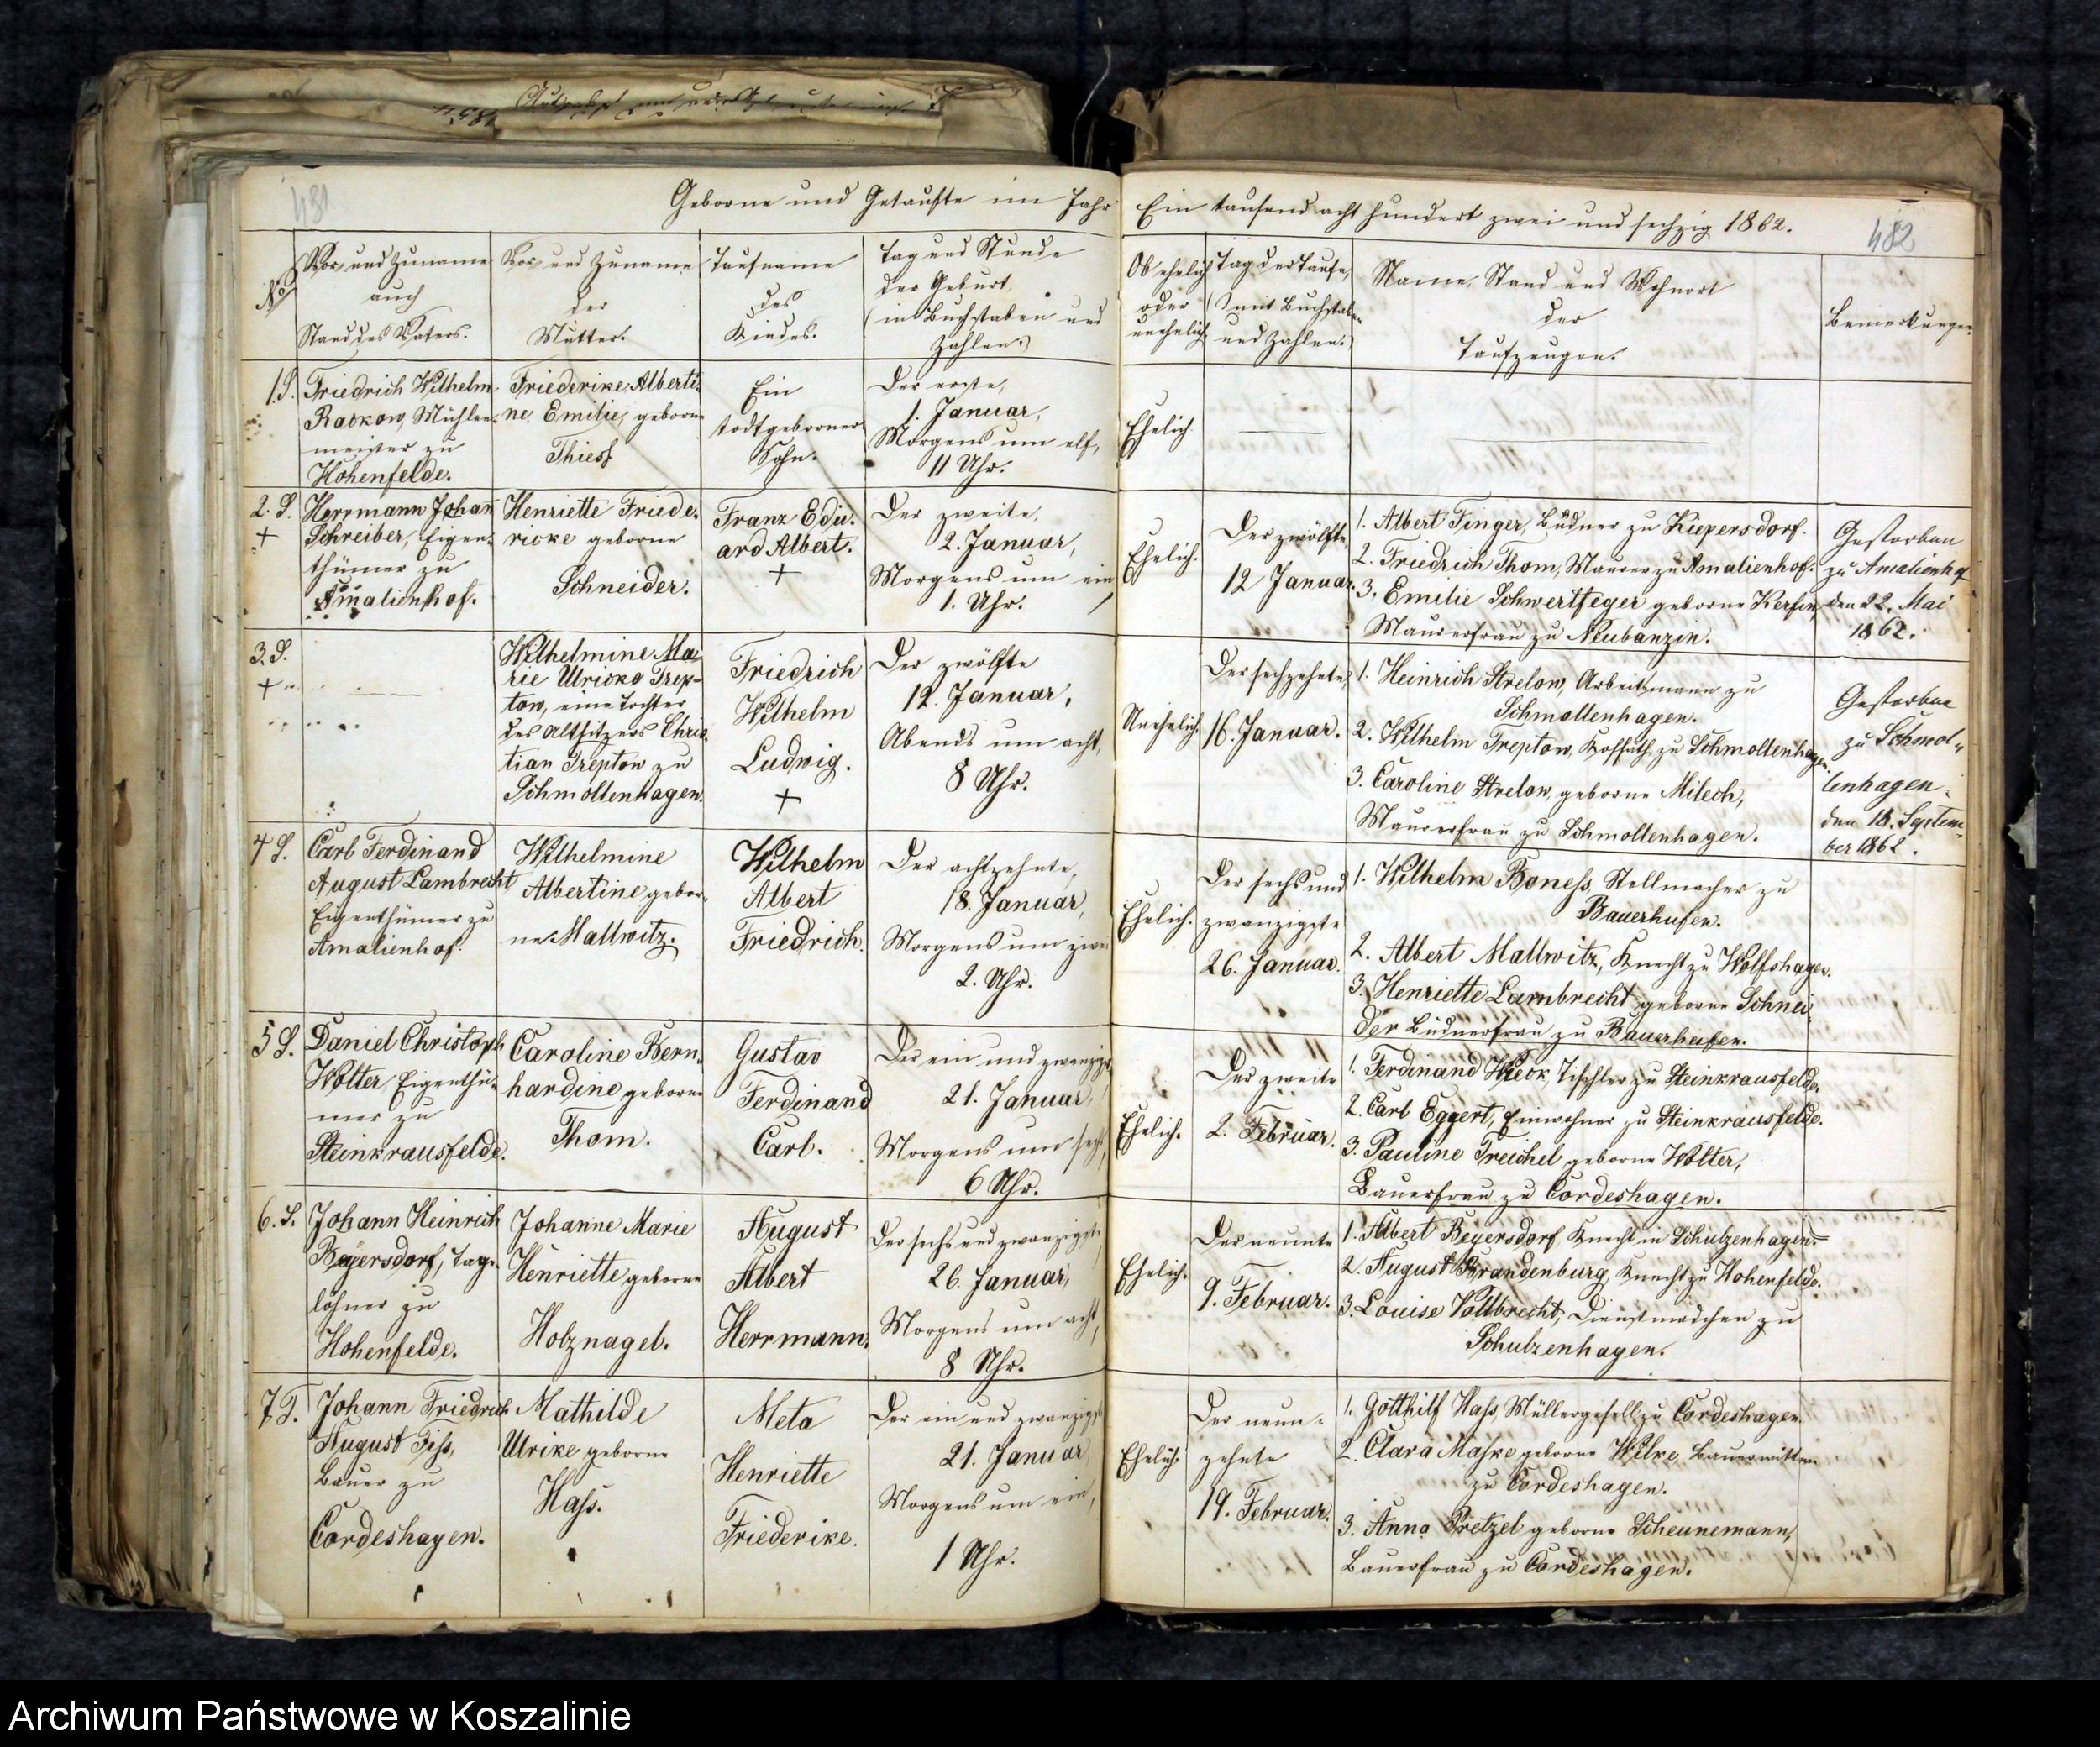 481
Geborne und Getaufte im Jahr
Ein tausend acht hundert zwei und sechzig 1862.
482
No
Vor- und Zuname
auch
Stand des Vaters.
Vor- und Zuname
der
Mutter.
Taufname
des
Kindes.
Tag und Stunde
der Geburt,
(in Buchstaben und
Zahlen.)
Ob ehelich
oder
unehelich
Tag der Taufe,
(mit Buchstaben
und Zahlen.)
Name, Stand und Wohnort
der
Taufzeugen.
Bemerkungen
1. S.
Friedrich Wilhelm
Raskow, Mühlen-
meister zu
Hohenfelde.
Friederike, Alberti-
ne, Emilie, geborne
Thiess
Ein
todtgeborner
Sohn.
Der erste,
1. Januar,
Morgens um elf,
11 Uhr.
Ehelich
2. S.
+
Herrmann Johann
Schreiber, Eigen-
thümer zu
Amalienhof.
Henriette Friede-
ricke geborne
Schneider.
Franz Edu-
ard Albert.
+
Der zweite,
2. Januar,
Morgens um ein
1. Uhr.
Ehelich.
Der zwölfte,
12 Januar.
1. Albert Finger, Büdner zu Kiepersdorf.
2. Friedrich Thom, Maurer zu Amalienhof.
3. Emilie Schwertfeger geborne Kersin,
Maurerfrau zu Neubanzin.
Gestorben
zu Amalienhof
den 22. Mai
1862.
3. S.
+
Wilhelmine Ma-
rie Ulricke Trep-
tow, eine Tochter
des Altsitzers Chris-
tian Treptow zu
Schmollenhagen.
Friedrich
Wilhelm
Ludwig.
+
Der zwölfte
12. Januar,
Abends um acht,
8 Uhr.
Unehelich.
Der sechzehnte,
16. Januar.
1. Heinrich Strelow, Arbeitsmann zu
Schmollenhagen.
2. Wilhelm Treptow, Kossäth zu Schmollenhagen.
3. Caroline Strelow, geborne Milech,
Maurerfrau zu Schmollenhagen.
Gestorben
zu Schmol-
lenhagen
den 18. Septem-
ber 1862.
4 S.
Carl Ferdinand
August Lambrecht
Eigenthümer zu
Amalienhof.
Wilhelmine
Albertine gebor-
ne Mallwitz.
Wilhelm
Albert
Friedrich.
Der achtzehnte,
18. Januar,
Morgens um zwei
2. Uhr.
Ehelich.
Der sechs und
zwanzigste
26. Januar.
1. Wilhelm Boness, Stellmacher zu
Bauerhufen.
2. Albert Mallwitz, Knecht zu Wolfshagen.
3. Henriette Lambrecht geborne Schnei-
der Büdnerfrau zu Bauerhufen.
5 S.
Daniel Christoph
Wolter, Eigenthü-
mer zu
Steinkrausfelde.
Caroline Bern-
hardine geborne
Thom.
Gustav
Ferdinand
Carl.
Der ein und zwanzigste
21. Januar,
Morgens um sechs,
6 Uhr.
Ehelich.
Der zweite
2. Februar.
1. Ferdinand Wieck, Tischler zu Steinkrausfelde.
2. Carl Eggert, Einwohner zu Steinkrausfelde.
3. Pauline Treichel geborne Wolter,
Bauerfrau zu Cordeshagen.
6. S.
Johann Heinrich
Beyersdorf, Tage-
löhner zu
Hohenfelde.
Johanne Marie
Henriette geborne
Holznagel.
August
Albert
Herrmann.
Der sechs und zwanzigste,
26. Januar,
Morgens um acht,
8 Uhr.
Ehelich.
Der neunte
9. Februar.
1. Albert Beyersdorf, Knecht in Schulzenhagen.
2. August Brandenburg, Knecht zu Hohenfelde.
3. Louise Vollbrecht, Dienstmädchen zu
Schulzenhagen.
7 T.
Johann Friedrich
August Fiss,
Bauer zu
Cordeshagen.
Mathilde
Ulrike geborne
Hass.
Meta
Henriette
Friederike.
Der ein und zwanzigste
21. Januar
Morgens um ein,
1 Uhr.
Ehelich
Der neun-
zehnte
19. Februar.
1. Gotthilf Hass, Müllergesell zu Cordeshagen.
2. Clara Maske geborne Wilke, Bauerwittwe
zu Cordeshagen.
3. Anna Pretzel geborne Scheunemann,
Bauerfrau zu Cordeshagen.
Archiwum Państwowe w Koszalinie